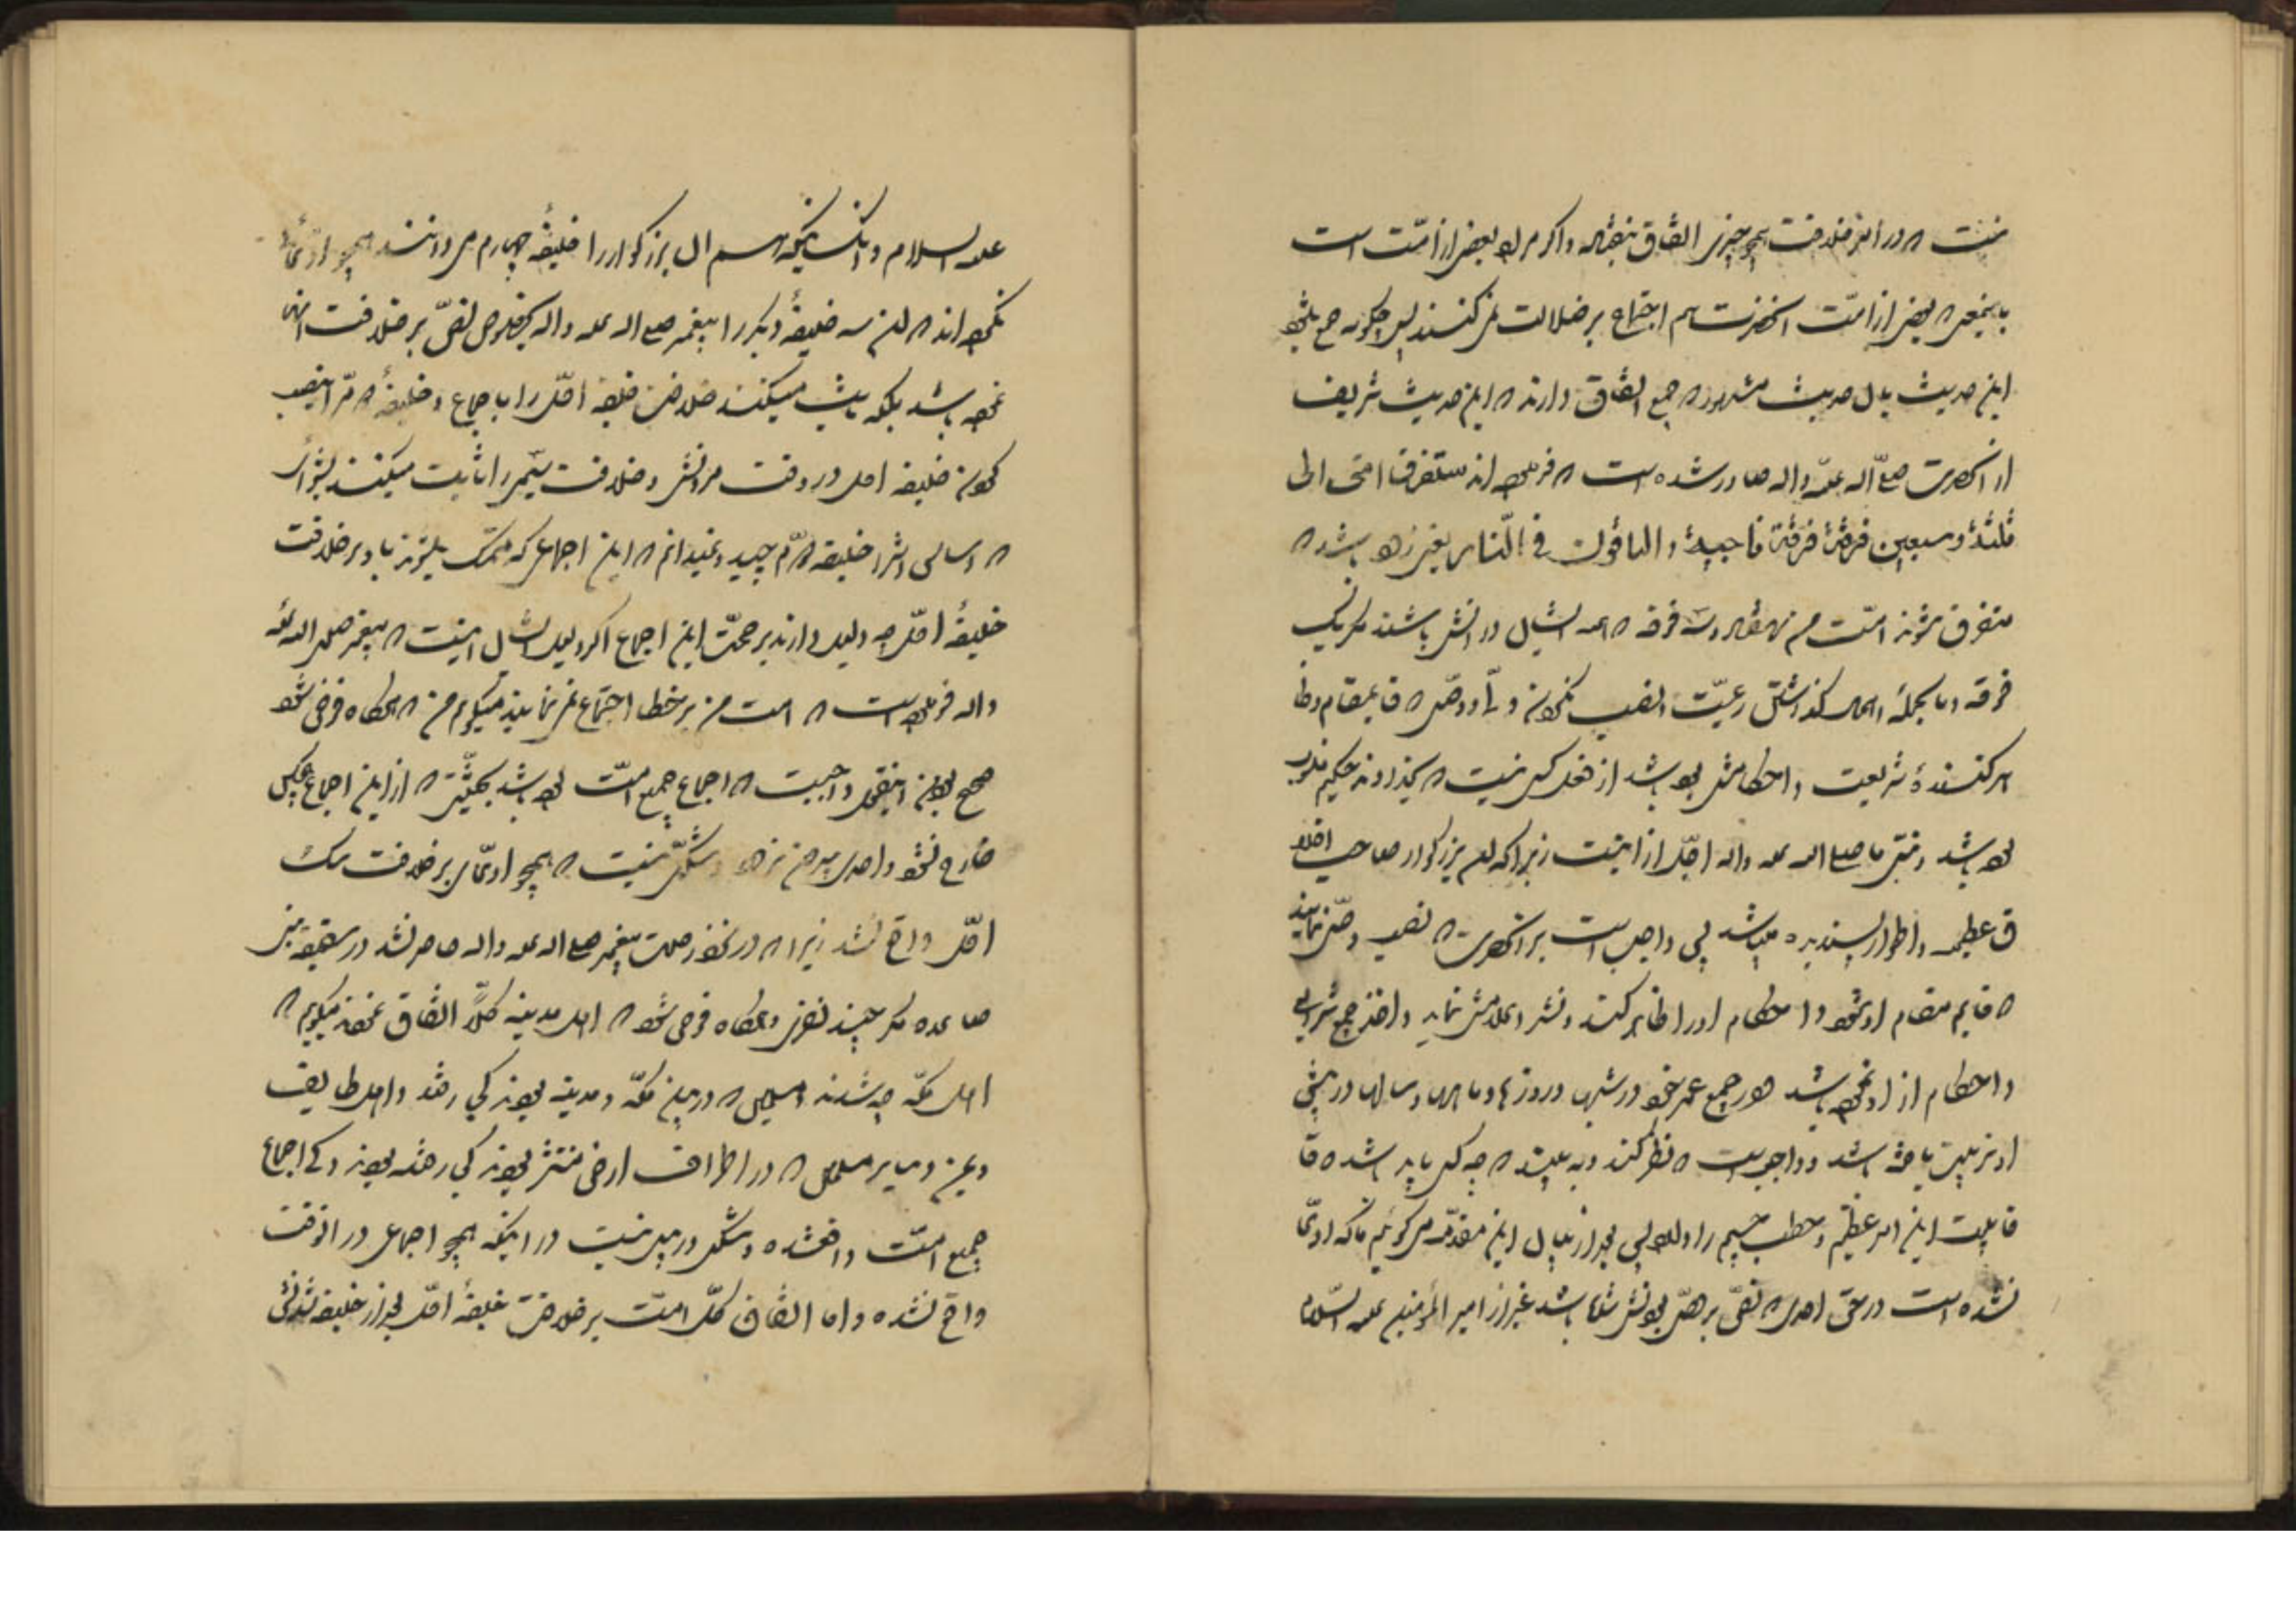 نیست که در امر خلافت همچو چیزی اتفاق بیفتد و اگر مراد بعض از امّت است
باینمعنی که بعض از امّت آنحضرت هم اجتماع بر ضلالت نمی کنند پس چگونه جمع میشود
این حدیث بآن حدیث مشهور که جمیع اتفاق دارند که این حدیث شریف
از آنحضرت صلّی اله علیه واله صادر شده است که فرموده اند ستفرق امتی الی
ثلثة وسبعین فرقة فرقة ناجیة و الباقون فی النّار یعنی زود باشد که
متفرق شوند امّت من بهفتاد و سه فرقه که همه ایشان در آتش باشند مگر یک
فرقه و بالجمله اهمال گذاشتن رعیّت و نصب نکردن وصی که قایمقام و ظا
هر کنندهٔ شریعت و احکامش بوده باشد از فعل کسی نیست که بگذراند حکیم
بوده باشد و نبیّ ما صلی اله علیه واله اجلّ از اینست زیرا که آن بزرگوار صاحب اخلا
ق عظیم و اطوار پسندیده میباشد پس واجب است بر آنحضرت که نصب وصی نماید
که قایم مقام او شود و احکام او را ظاهر کند و نشر اعلامش نماید و اخذ جمیع شرایع
و احکام از او نموده باشد در جمیع عمر خود در شبها و روزها و ماهها و سالها در پیش
او تربیت یافته باشد و واجب است که نظر کند و به بیند که چه کس باید باشد که قا
قابلیت این امر عظیم و خطب جسیم را دارد پس بعد از بیان این مقدّمه می گوئیم که ادّعا
نشده است در حق احدی که نصّ بر وصی بودنش شده باشد غیر از امیر المؤمنین علیه السّلام
علیه السلام و آنکسانیکه هم آن بزرگوار را خلیفهٔ چهارم می دانند همچو ادّعائی
نکرده اند که آن سه خلیفهٔ دیگر را پیغمبر صلی اله علیه واله بخصوص نصّ بر خلافت انها
نموده باشد بلکه ثابت میکنند خلافت خلیفه اوّل را باجماع و خلیفهٔ دوّم را بنصب
کردن خلیفه اول در وقت مردنش و خلافت سیّم را ثابت میکنند بشورای
که اساس اشرا خلیفه دوّم چید و نمیدانم که این اجماعی که متمسک میشوند باو بر خلافت
خلیفهٔ اوّل چه دلیل دارند بر حجیّت این اجماع اگر دلیل ایشان اینست که پیغمبر صلی اله علیه
واله فرموده است که امت من بر خطا اجتماع نمی نمایند میگویم من که هرگاه فرض شود
صحیح بودن اینقول واجبست که اجماع جمیع امّت بوده باشد بحیثیّتی که از این اجماع هیچکس
خارج نشود و احدی بیرون نرود و شکّی نیست که همچو اجماعی بر خلافت
اوّل واقع نشد زیرا که در نزد رحلت پیغمبر صلی اله علیه واله حاضر نشد در سقیفه بنی
ساعده مگر چند نفری و هرگاه فرض شود که اهل مدینه کلّاً اتفاق نمودند میگویم که
اهل مکّه چه شدند و مسلمین که در بین مکّه و مدینه بودند کی رفتند و اهل طایف
و یمن و سایر مسلمین که در اطراف ارض منتشر بودند کی رفته بودند و کی اجماع
جمیع امّت واقعشده و شکی در بین نیست در اینکه همچو اجماعی در انوقت
واقع نشده و اما اتفاق کلّ امّت بر خلافت خلیفهٔ اوّل بعد از خلیفه شدنش